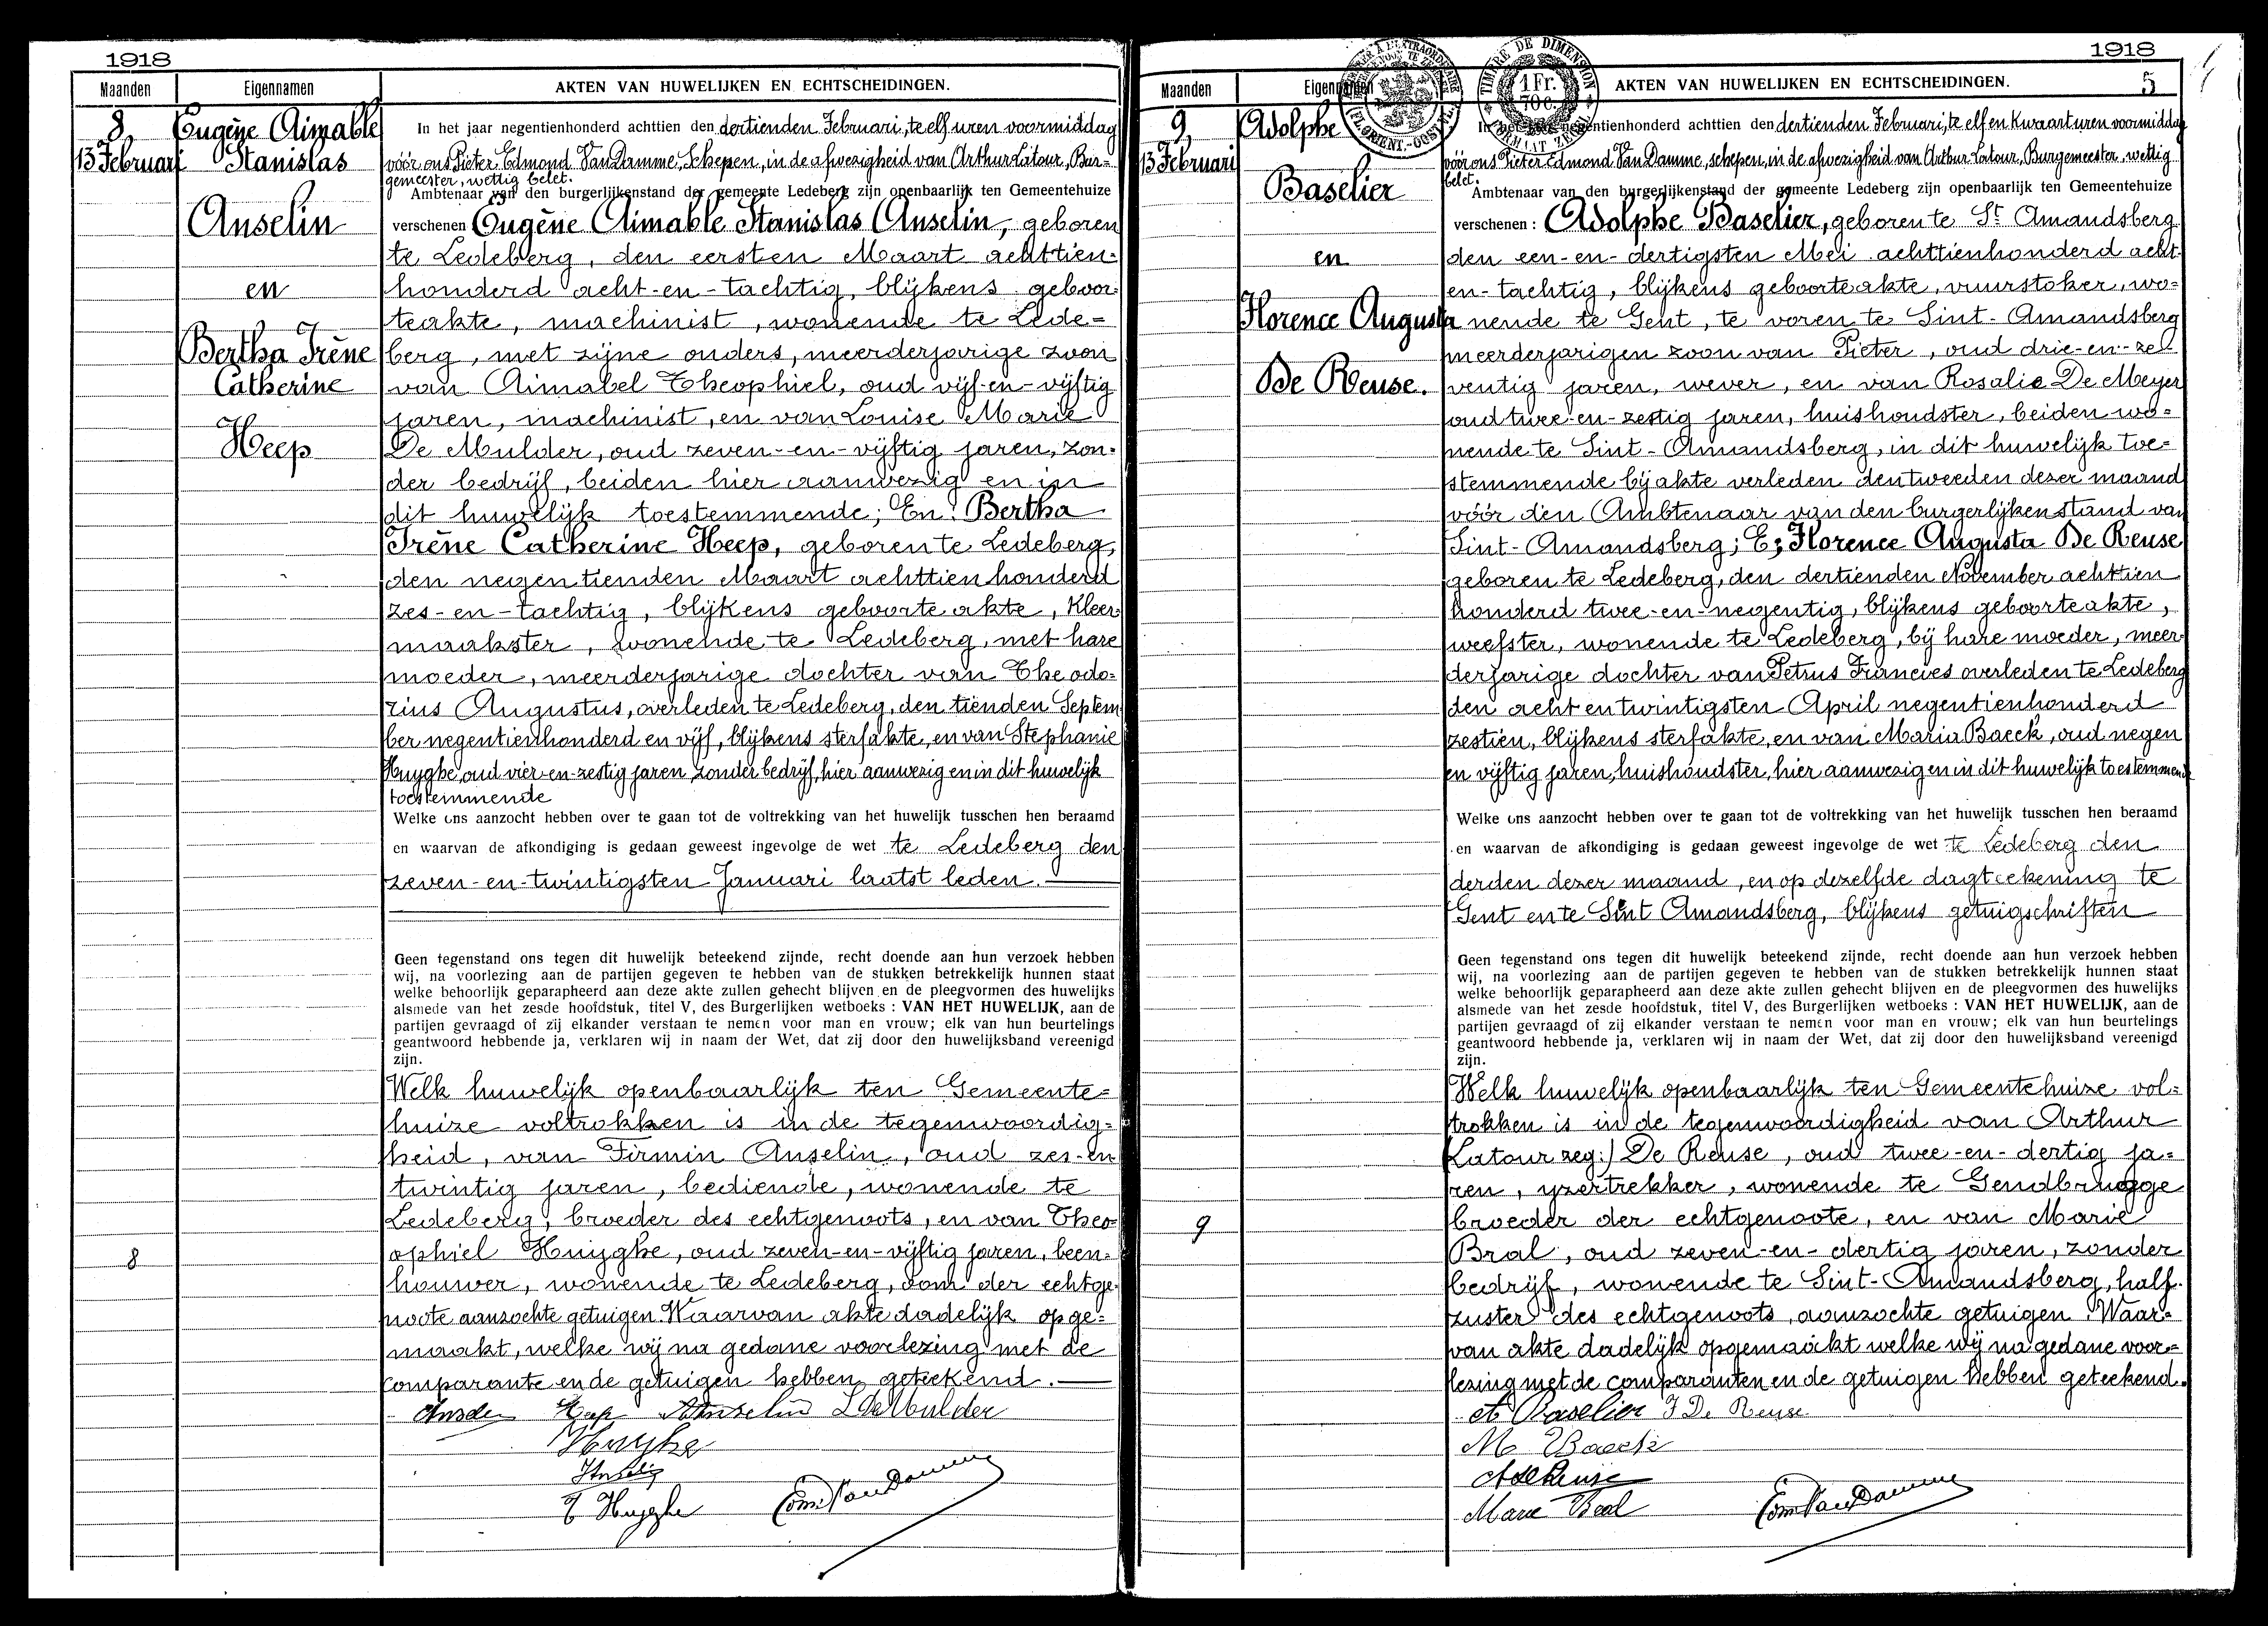 1918
Maanden Eigennamen AKTEN VAN HUWELIJKEN EN ECHTSCHEIDINGEN.
8,
13 Februari
Eugène Aimable
Stanislas
Anselin
en
Bertha Irène
Catherine
Heep
In het jaar negentienhonderd achttien den dertienden Februari, te elf uren voormiddag
vóór ons Pieter Edmond Van Damme, Schepen, in de afwezigheid van Arthur Latour, Bur-
gemeester, wettig belet.
Ambtenaar van den burgerlijkenstand der gemeente Ledeberg zijn openbaarlijk ten Gemeentehuize
verschenen Eugène Aimable Stanislas Anselin, geboren
te Ledeberg, den eersten Maart achttien-
honderd acht-en-tachtig, blijkens geboor-
teakte, machinist, wonende te Lede=
berg, met zijne ouders, meerderjarige zoon
van Aimabel Theophiel, oud vijf-en-vijftig
jaren, machinist, en van Louise Marie
De Mulder, oud zeven-en-vijftig jaren, zon-
der bedrijf, beiden hier aanwezig en in
dit huwelijk toestemmende; En: Bertha
Irène Catherine Heep, geboren te Ledeberg,
den negentienden Maart achttienhonderd
zes-en-tachtig, blijkens geboorteakte, Kleer-
maakster, wonende te Ledeberg, met hare
moeder, meerderjarige dochter van Theodo=
rius Augustus, overleden te Ledeberg, den tienden Septem
ber negentienhonderd en vijf, blijkens sterfakte, en van Stephanie
Huyghe, oud vier-en-zestig jaren, zonder bedrijf, hier aanwezig en in dit huwelijk
toestemmende
Welke ons aanzocht hebben over te gaan tot de voltrekking van het huwelijk tusschen hen beraamd
en waarvan de afkondiging is gedaan geweest ingevolge de wet te Ledeberg den
zeven-en-twintigsten Januari laatst leden.
Geen tegenstand ons tegen dit huwelijk beteekend zijnde, recht doende aan hun verzoek hebben
wij, na voorlezing aan de partijen gegeven te hebben van de stukken betrekkelijk hunnen staat
welke behoorlijk geparapheerd aan deze akte zullen gehecht blijven en de pleegvormen des huwelijks
alsmede van het zesde hoofdstuk, titel V, des Burgerlijken wetboeks : VAN HET HUWELIJK, aan de
partijen gevraagd of zij elkander verstaan te nemen voor man en vrouw; elk van hun beurtelings
geantwoord hebbende ja, verklaren wij in naam der Wet, dat zij door den huwelijksband vereenigd
zijn.
Welk huwelijk openbaarlijk ten Gemeente=
huize voltrokken is in de tegenwoordig=
heid, van Firmin Anselin, oud zes-en
twintig jaren, bediende, wonende te
Ledeberg, broeder des echtgenoots, en van Theo=
8
ophiel Huyghe, oud zeven-en-vijftig jaren, been=
houwer, wonende te Ledeberg, oom der echtge-
noote aanzochte getuigen. Waarvan akte dadelijk opge=
maakt, welke wij na gedane voorlezing met de
comparante en de getuigen hebben geteekend.
Heep Anselin L De Mulder
Huyghe
T Huyghe Edm Van Damme
1918
5
Maanden Eigennamen AKTEN VAN HUWELIJKEN EN ECHTSCHEIDINGEN.
TIMBRE DE DIMENSION
1 Fr.
70 c.
FORMAAT ZEGEL
9,
13 Februari
Adolphe
Baselier
en
Florence Augusta
De Reuse.
In het jaar negentienhonderd achttien den dertienden Februari, te elf en kwaart uren voormiddag
vóór ons Pieter Edmond Van Damme, schepen, in de afwezigheid van Arthur Latour, Burgemeester, wettig
belet.
Ambtenaar van den burgerlijkenstand der gemeente Ledeberg zijn openbaarlijk ten Gemeentehuize
verschenen : Adolphe Baselier, geboren te St Amandsberg
den een-en-dertigsten Mei achttienhonderd acht-
en-tachtig, blijkens geboorteakte, vuurstoker, wo=
nende te Gent, te voren te Sint-Amandsberg
meerderjarigen zoon van Pieter, oud drie-en-ze-
ventig jaren, wever, en van Rosalie De Meyer
oud twee-en-zestig jaren, huishoudster, beiden wo=
nende te Sint-Amandsberg, in dit huwelijk toe=
stemmende bij akte verleden den tweeden dezer maand
vóór den Ambtenaar van den burgerlijken stand van
Sint-Amandsberg; En; Florence Augusta De Reuse
geboren te Ledeberg, den dertienden November achttien
honderd twee-en-negentig, blijkens geboorteakte,
weefster, wonende te Ledeberg, bij hare moeder, meer-
derjarige dochter van Petrus Francies overleden te Ledeberg
den acht en twintigsten April negentienhonderd
zestien, blijkens sterfakte, en van Maria Baeck, oud negen
en vijftig jaren, huishoudster, hier aanwezig en in dit huwelijk toestemmende
Welke ons aanzocht hebben over te gaan tot de voltrekking van het huwelijk tusschen hen beraamd
en waarvan de afkondiging is gedaan geweest ingevolge de wet te Ledeberg den
derden dezer maand, en op dezelfde dagteekening te
Gent en te Sint Amandsberg, blijkens getuigschriften
Geen tegenstand ons tegen dit huwelijk beteekend zijnde, recht doende aan hun verzoek hebben
wij, na voorlezing aan de partijen gegeven te hebben van de stukken betrekkelijk hunnen staat
welke behoorlijk geparapheerd aan deze akte zullen gehecht blijven en de pleegvormen des huwelijks
alsmede van het zesde hoofdstuk, titel V, des Burgerlijken wetboeks : VAN HET HUWELIJK, aan de
partijen gevraagd of zij elkander verstaan te nemen voor man en vrouw; elk van hun beurtelings
geantwoord hebbende ja, verklaren wij in naam der Wet, dat zij door den huwelijksband vereenigd
zijn.
Welk huwelijk openbaarlijk ten Gemeentehuize vol=
trokken is in de tegenwoordigheid van Arthur
(Latour zeg:) De Reuse, oud twee-en-dertig ja=
ren, yzertrekker, wonende te Gendbrugge
9
broeder der echtgenoote, en van Marie
Bral, oud zeven-en-dertig jaren, zonder
bedrijf, wonende te Sint-Amandsberg, half-
zuster des echtgenoots, aanzochte getuigen. Waar=
van akte dadelijk opgemaakt welke wij na gedane voor=
lezing met de comparanten en de getuigen hebben geteekend.
A Baselier F De Reuse
M Baeck
A De Reuse
Marie Bral Edm Van Damme